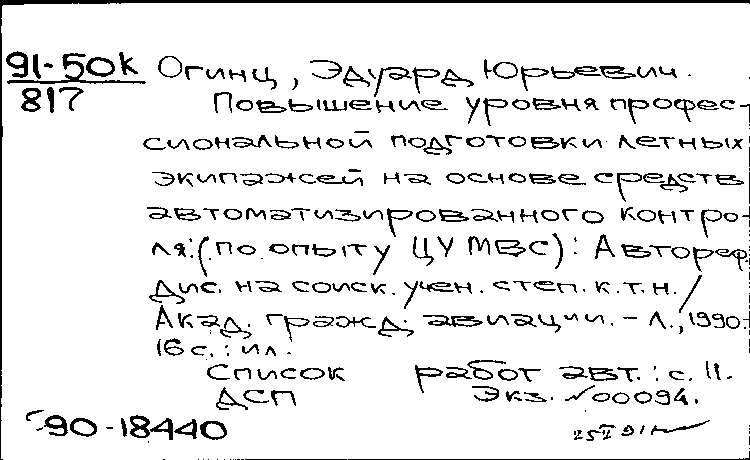 91-50к Огинц, Эдуард Юрьевич.
817 Повышение уровня профес-
сиональной подготовки летных
экипажей на основе средств
автоматизированного контро-
ля: (по опыту ЦУ МВС): Автореф.
дис. на соиск. учен. степ. к.т.н. /
Акад. гражд. авиации. - Л., 1990.-
16 с. : ил.
Список работ авт.: с. 11.
ДСП Экз. №00094.
90-18440